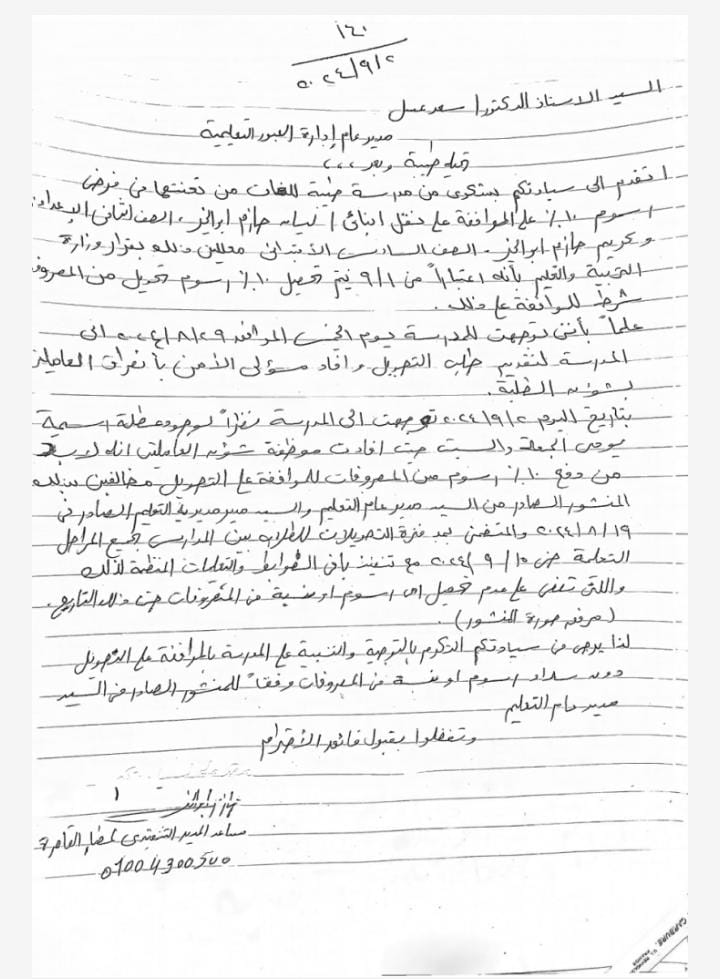 ١٦٠
٢٠٢٤/٩/٢
السيد الاستاذ الدكتور / سعد عسل
مدير عام إدارة العبور التعليمية
تحية طيبة وبعد ،،،
اتقدم الى سيادتكم بشكوى من مدرسة طيبة للغات من تعنتها فى فرض
رسوم ١٠٪ على الموافقة على نقل ابنائى / حازم ابوالخير ـ الصف الثانى الإعدادى
وكريم حازم ابوالخير ـ الصف السادس الأبتدائى معللين ذلك بقرار وزارة
التربية والتعليم بأنه اعتباراً من ٩/١ يتم تحصيل ١٠٪ رسوم تحويل من المصروفات
شرط للموافقة على ذلك .
علماً بأننى توجهت للمدرسة يوم الخميس الموافق ٢٠٢٤/٨/٢٩ الى
المدرسة لتقديم طلب التحويل وافاد مسؤلى الأمن بأنصراف العاملين
بشؤن الطلبة .
بتاريخ اليوم ٢٠٢٤/٩/٢ توجهت الى المدرسة نظراً لوجود عطلة رسمية
يومى الجمعة والسبت حيث افادت موظفة شؤن العاملين انه لابد
من دفع ١٠٪ رسوم من المصروفات للموافقة على التحويل مخالفين بذلك
المنشور الصادر من السيد مدير عام التعليم والسيد مدير مديرية التعليم الصادر فى
٢٠٢٤/٨/١٩ والمتضمن مد فترة التحويلات للطلاب بين المدارس لجميع المراحل
التعلمة حتى ٢٠٢٤/٩/١٥ مع تنفيذ باقى الضوابط والتعليمات المنظمة لذلك
واللتى تنص على عدم تحصيل اى رسوم او نسبة من المصروفات حتى ذلك التاريخ .
(مرفق صورة المنشور) .
لذا يرجى من سيادتكم التكرم بالتوصية والتنبية على المدرسة بالموافقة على التحويل
دون سداد رسوم او نسبة من المصروفات وفقاً للمنشور الصادر من السيد
مدير عام التعليم
وتفضلوا بقبول فائق الأحترام
مساعد المدير التنفيذى لمطار القاهرة